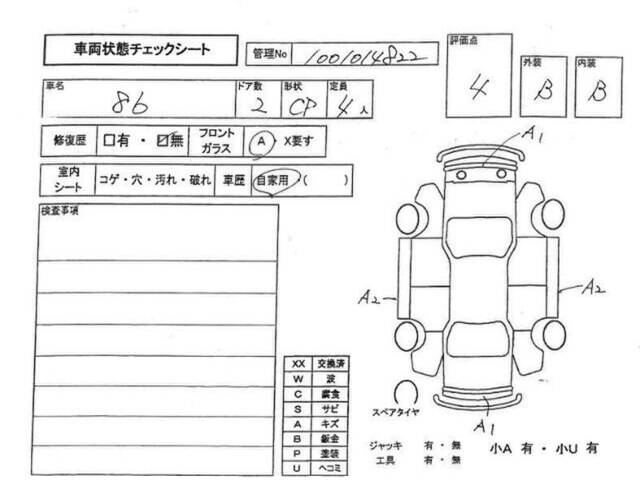 車両状態チェックシート 管理No 1001014822
評価点 4 外装 B 内装 B
車名 86 ドア数 2 形状 CP 定員 4人
修復歴 □有・☑無 フロントガラス A・X要す
室内シート コゲ・穴・汚れ・破れ 車歴 自家用・( )
検査事項
A1
A2
A2
A1
XX 交換済
W 波
C 腐食
S サビ
A キズ
B 鈑金
P 塗装
U ヘコミ
スペアタイヤ
ジャッキ 有・無
工具 有・無
小A 有・小U 有